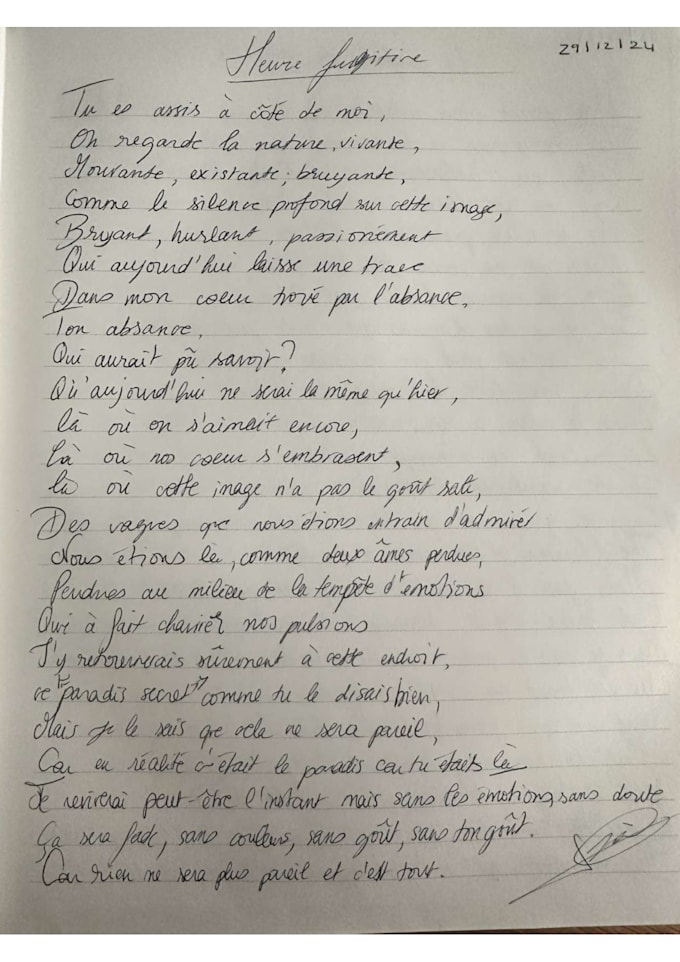 Heure fugitive
29/12/24
Tu es assis à côté de moi,
On regarde la nature, vivante,
Mouvante, existante, bruyante,
Comme le silence profond sur cette image,
Bruyant, hurlant, passionément
Qui aujourd'hui laisse une trace
Dans mon coeur troué par l'absance,
Ton absance,
Qui aurait pû savoir?
Qu'aujourd'hui ne serai la même qu'hier,
là où on s'aimait encore,
Là où nos coeur s'embrasent,
là où cette image n'a pas le goût salé,
Des vagues que nous étions entrain d'admirer
Nous étions là, comme deux âmes perdues,
Perdues au milieu de la tempête d'émotions
Qui à fait chavirer nos pulsions
J'y retournerais sûrement à cette endroit,
ce "paradis secret" comme tu le disais bien,
Mais je le sais que cela ne sera pareil,
Car en réalité c'était le paradis car tu étais là
Je revivrai peut-être l'instant mais sans les émotions, sans doute
Ça sera fade, sans couleurs, sans goût, sans ton goût.
Car rien ne sera plus pareil et c'est tout.